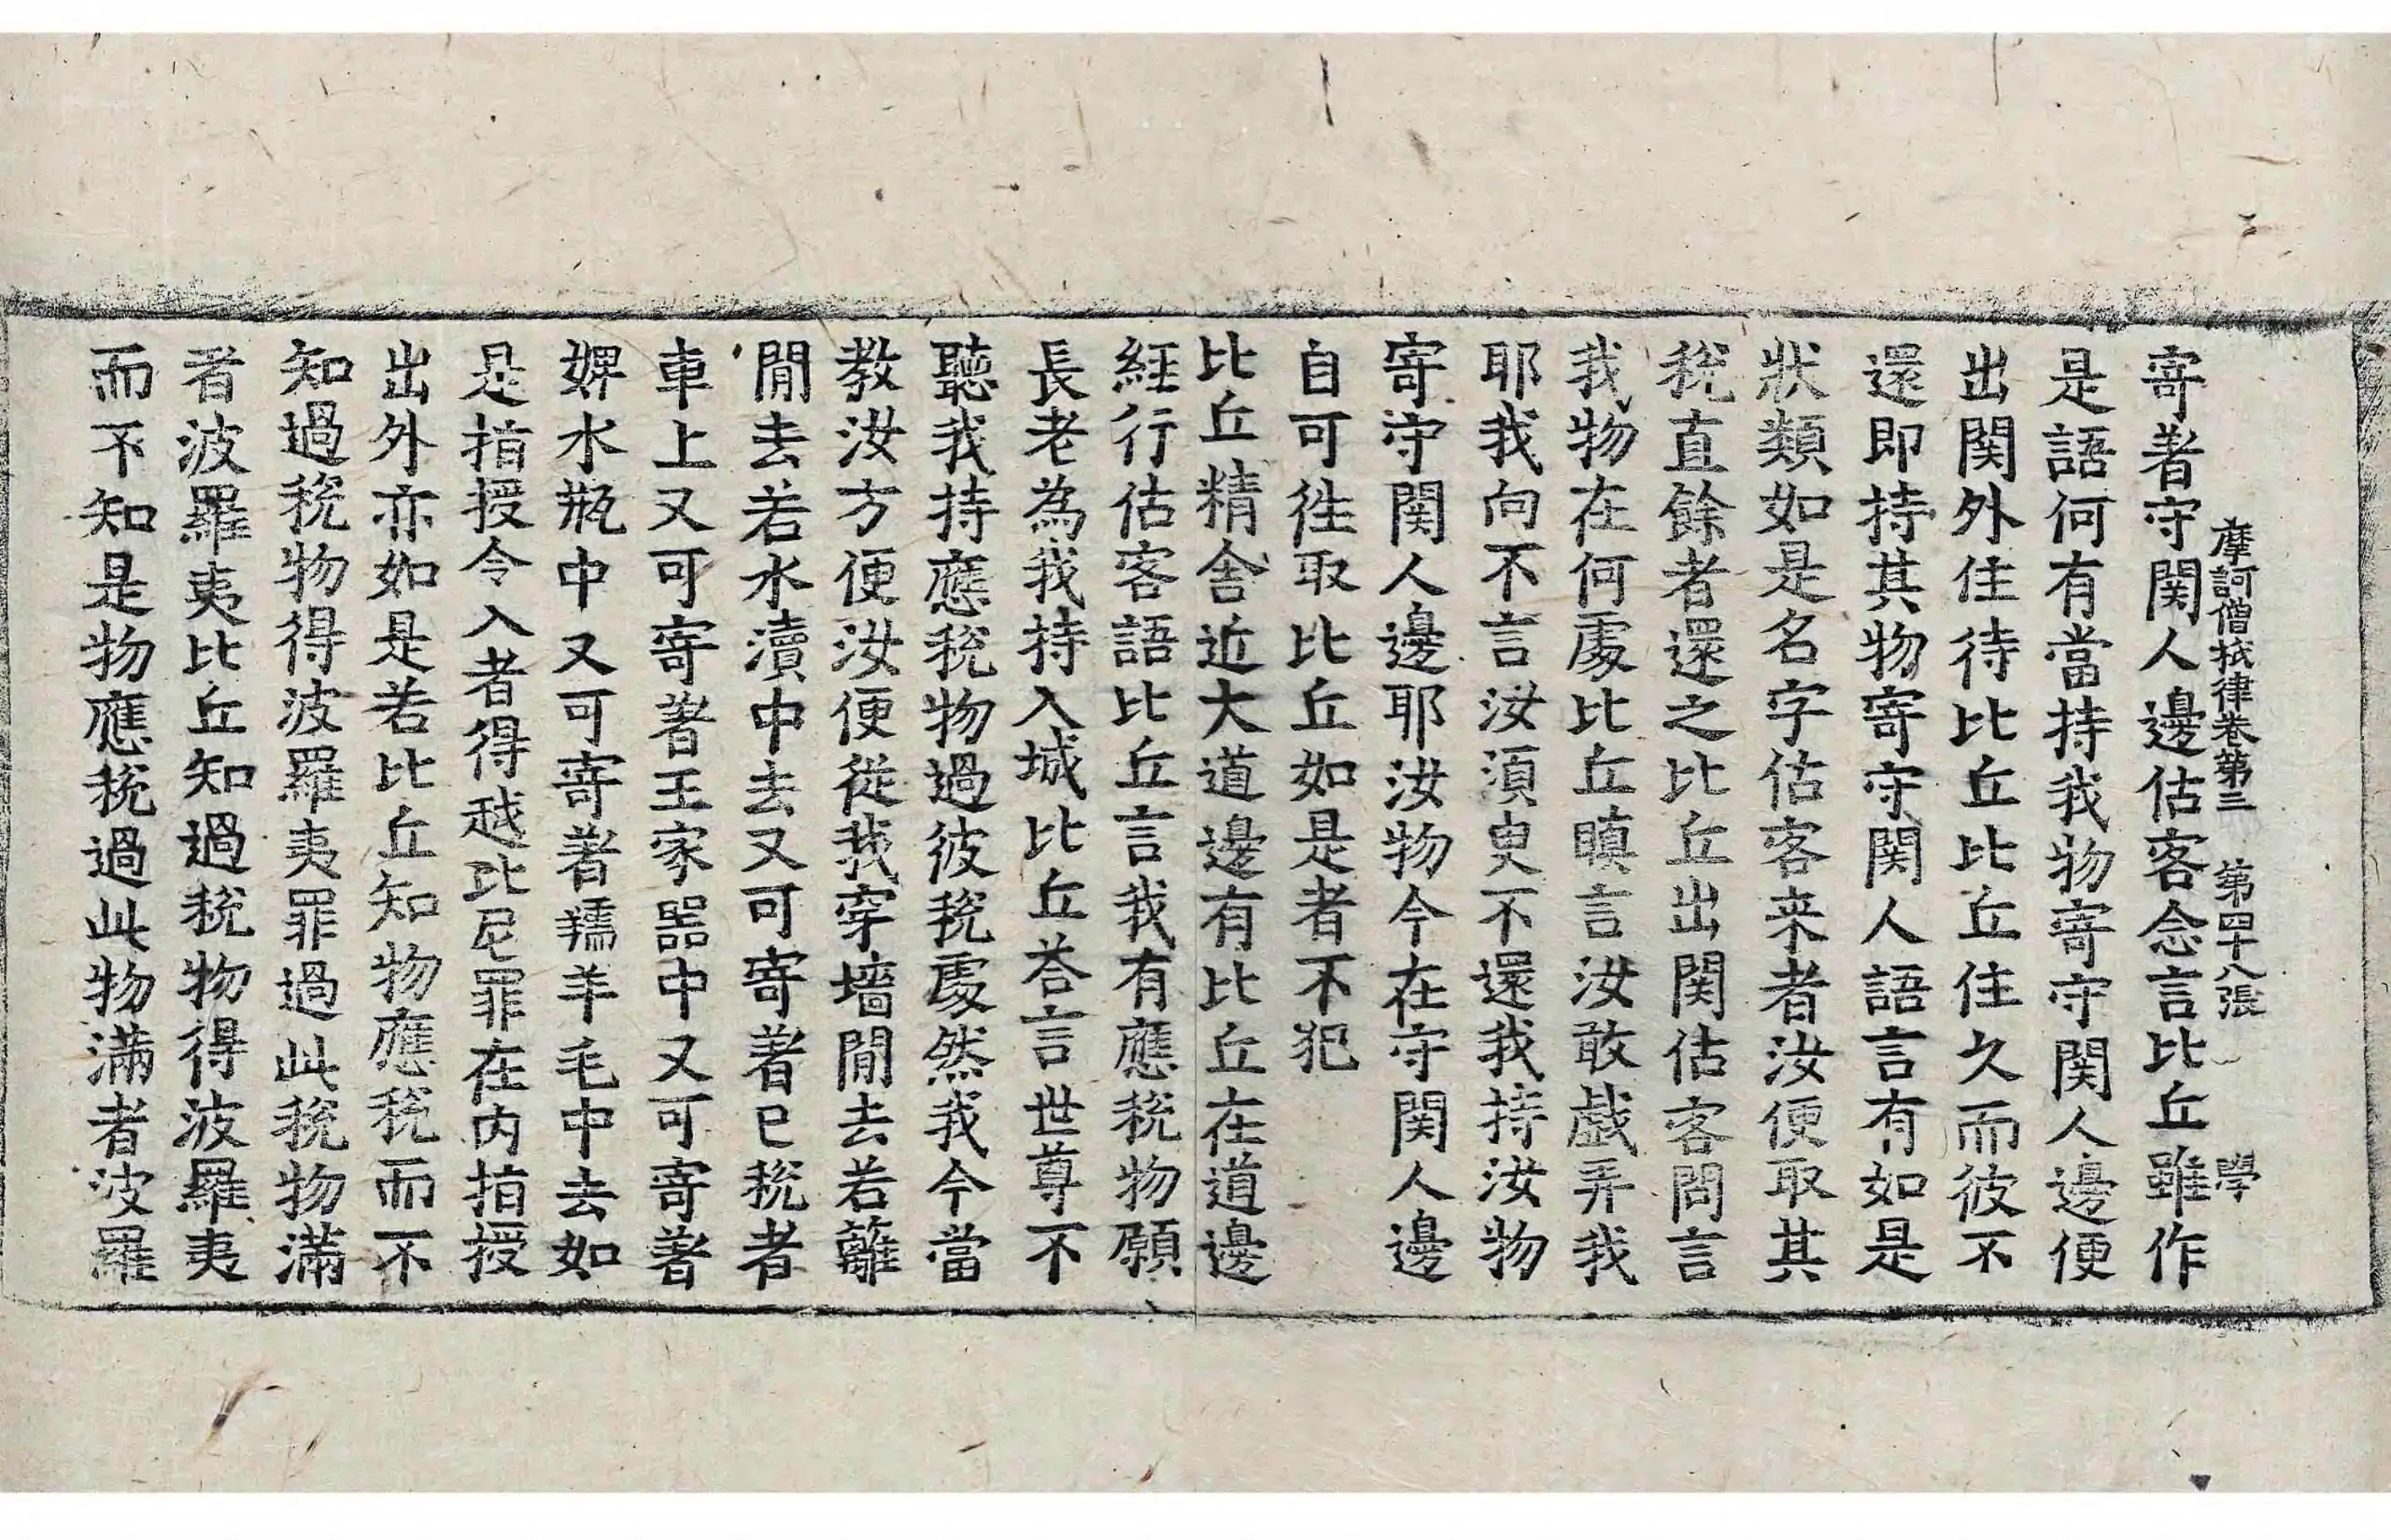 摩訶僧祇律卷第三 第四十八張 學
寄著守関人邊估客念言比丘雖作
是語何有當持我物寄守関人邊便
出関外住待比丘比丘住久而彼不
還即持其物寄守関人語言有如是
狀類如是名字估客来者汝便取其
稅直餘者還之比丘出関估客問言
我物在何處比丘瞋言汝敢戲弄我
耶我向不言汝須臾不還我持汝物
寄守関人邊耶汝物今在守関人邊
自可徃取比丘如是者不犯
比丘精舍近大道邊有比丘在道邊
經行估客語比丘言我有應稅物願
長老為我持入城比丘荅言世尊不
聽我持應稅物過彼稅處然我今當
教汝方便汝便從我穿墻間去若籬
間去若水瀆中去又可寄著已稅者
車上又可寄著王家器中又可寄著
婢水瓶中又可寄著羺羊毛中去如
是指授令入者得越比尼罪在内指授
出外亦如是若比丘知物應稅而不
知過稅物得波羅夷罪過此稅物滿
者波羅夷比丘知過稅物得波羅夷
而不知是物應稅過此物滿者波羅